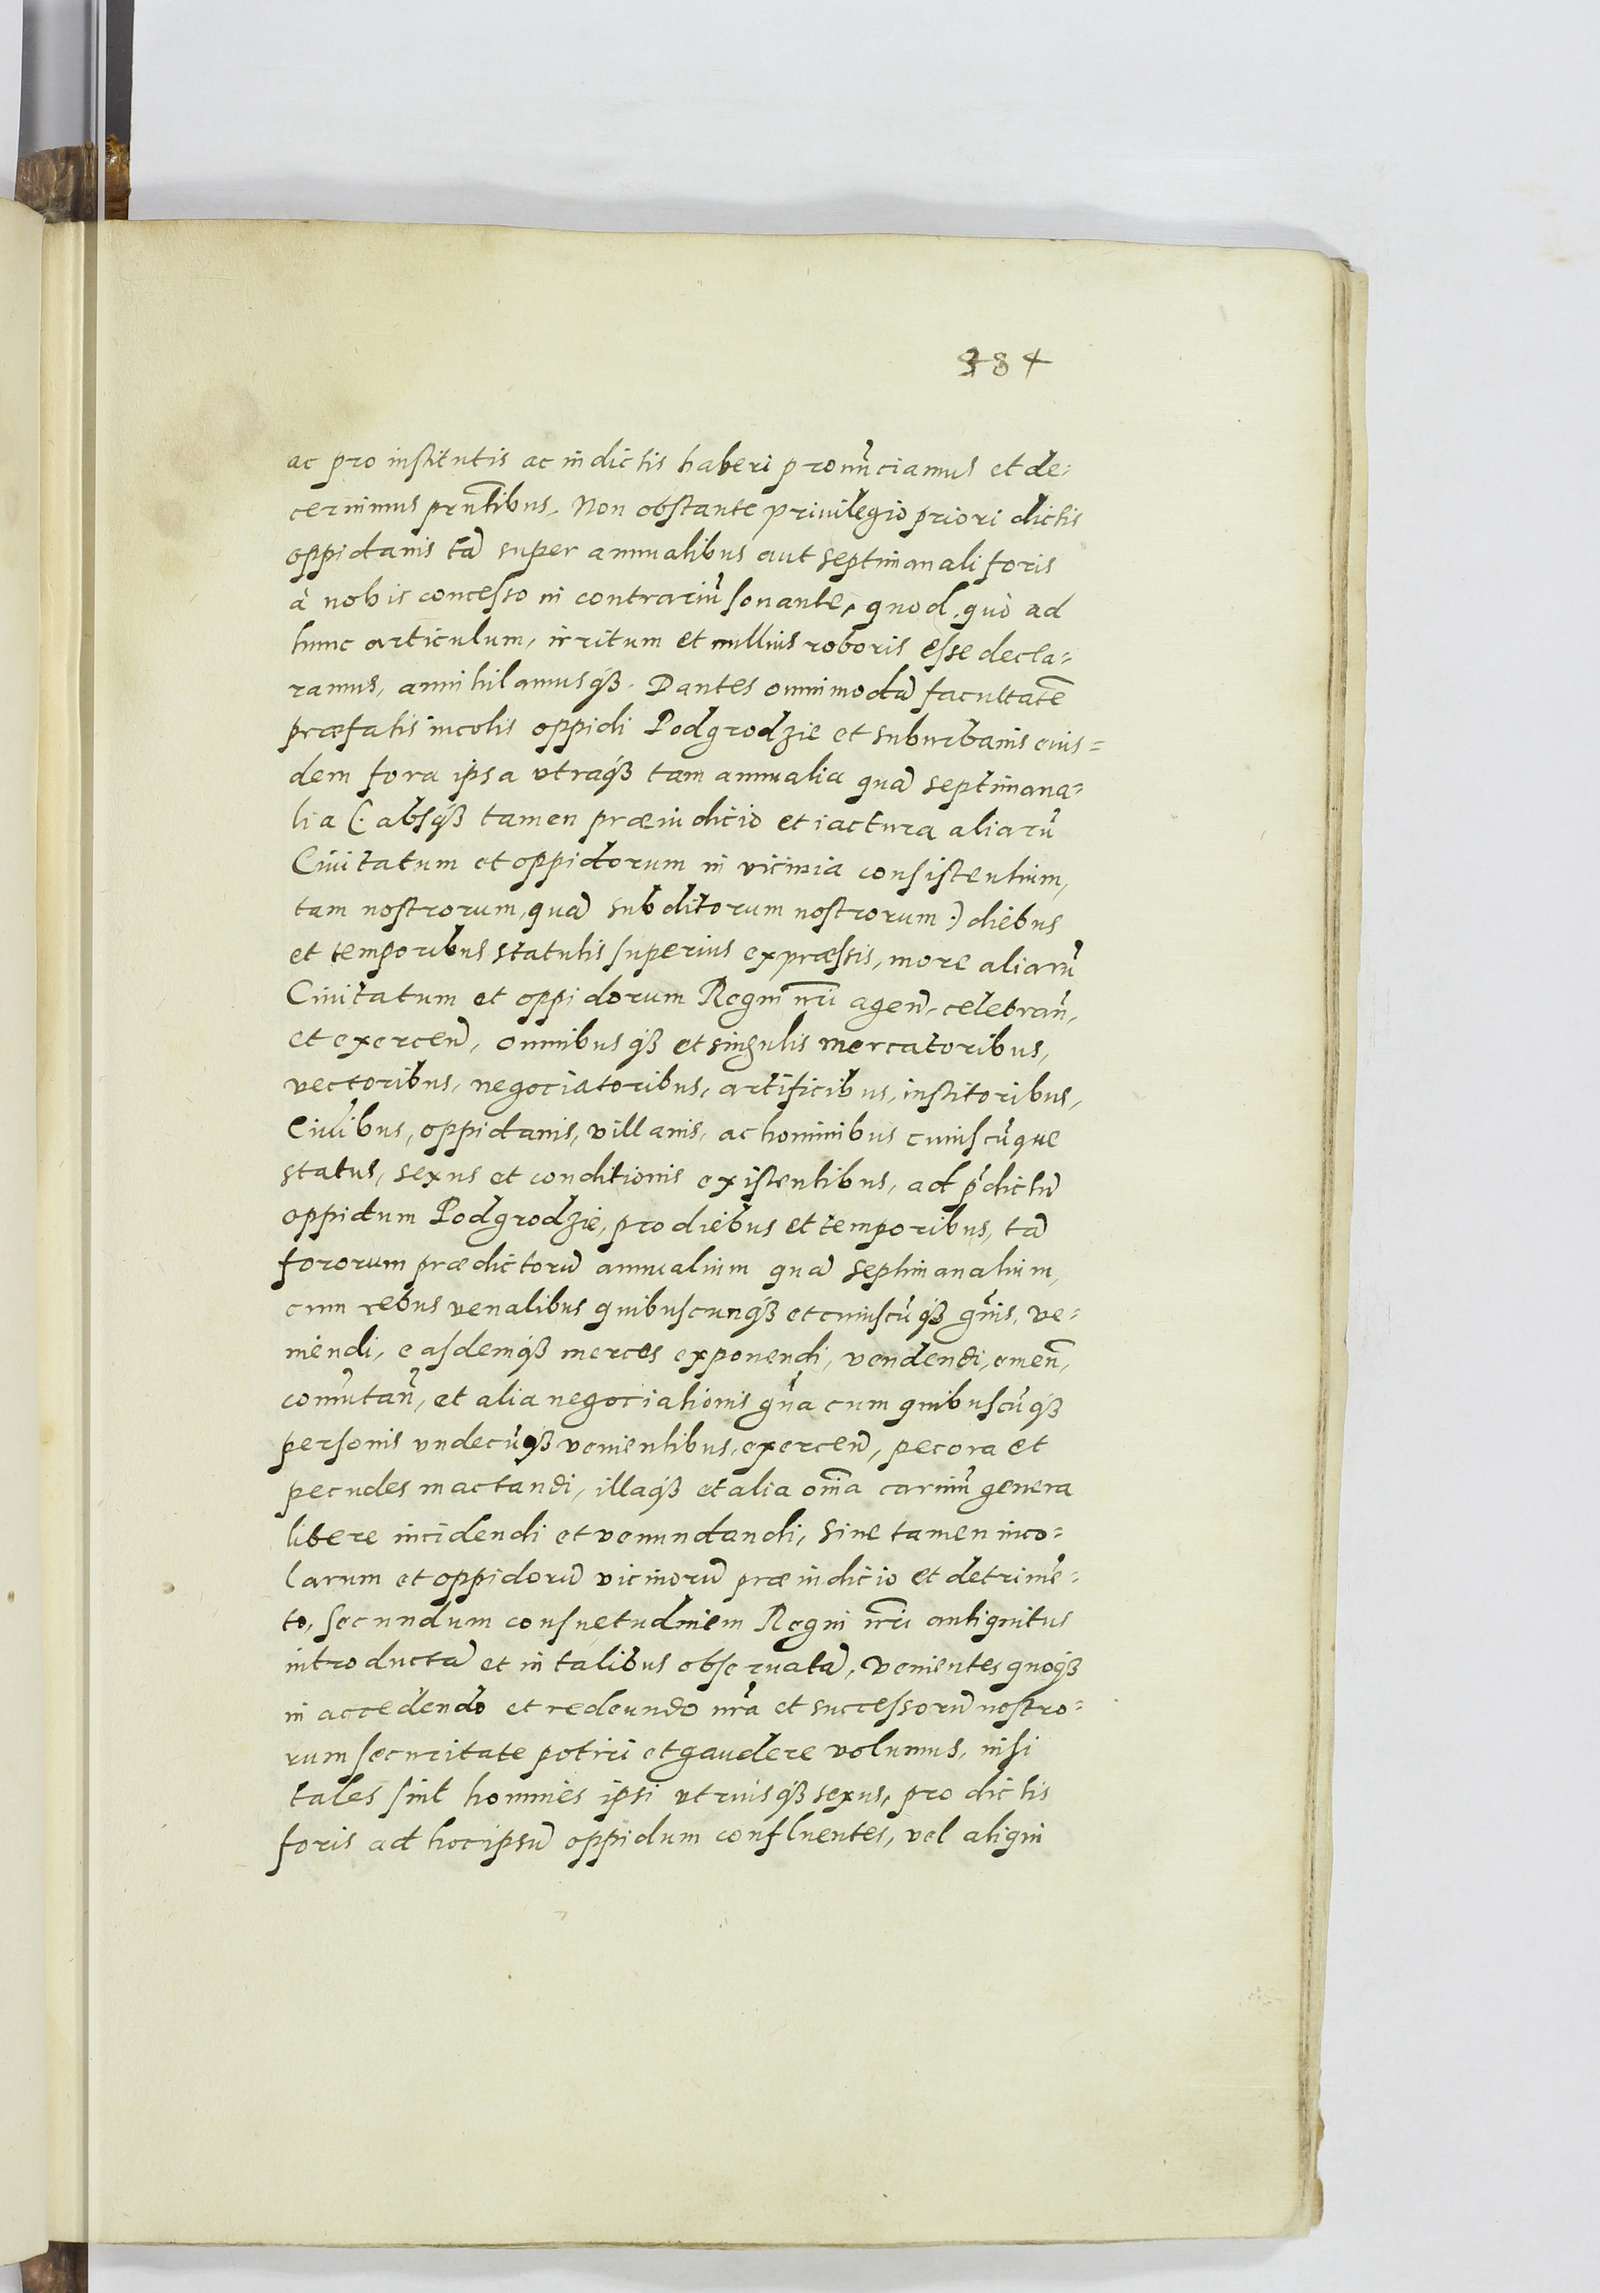 384
ac pro institutis ac indictis haberi pronũciamus et de=
cernimus prñtibus. Non obstante priuilegio priori dictis
oppidanis tã super annualibus aut septimanali foris
à nobis concesso in contrariũ sonante, quod, quò ad
hunc articulum, irritum et nullius roboris esse decla=
ramus, annihilamusq́ꝫ. Dantes omnimodã facultatẽ
præfatis incolis oppidi Podgrodzie et suburbanis eius=
dem fora ipsa vtraq́ꝫ tam annualia quã septimana=
lia (: absq́ꝫ tamen præiudicio et iactura aliarũ
Ciuitatum et oppidorum in vicinia consistentium,
tam nostrorum, quã subditorum nostrorum :) diebus
et temporibus statutis superius expræssis, more aliarũ
Ciuitatum et oppidorum Regni nr̃i ageñ, celebrañ,
et exerceñ, omnibusq́ꝫ et singulis mercatoribus,
vectoribus, negociatoribus, artificibus, institoribus,
Ciuibus, oppidanis, villanis, ac hominibus cuiuscũque
status, sexus et conditionis existentibus, ad p̃dictũ
oppidum Podgrodzie, pro diebus et temporibus, tã
fororum prædictorũ annualium quã septimanalium,
cum rebus venalibus quibuscunq́ꝫ et cuiuscũq́ꝫ gñis, ve=
niendi, easdemq́ꝫ merces exponendi, vendendi, emeñ,
com̃utañ, et alia negociationis gña cum quibuscũq́ꝫ
personis vndecũq́ꝫ venientibus, exerceñ, pecora et
pecudes mactandi, illaq́ꝫ et alia om̃ia carniũ genera
libere incidendi et venundandi, sine tamen inco=
larum et oppidorũ vicinorũ præiudicio et detrimẽ=
to, secundum consuetudinem Regni nr̃i antiquitus
introductã et in talibus obseruatã, Venientes quoq́ꝫ
in accedendo et redeundo nr̃a et successorũ nostro=
rum securitate potiri et gaudere volumus, nisi
tales sint homines ipsi vtriusq́ꝫ sexus, pro dictis
foris ad hoc ipsũ oppidum confluentes, vel aliqui